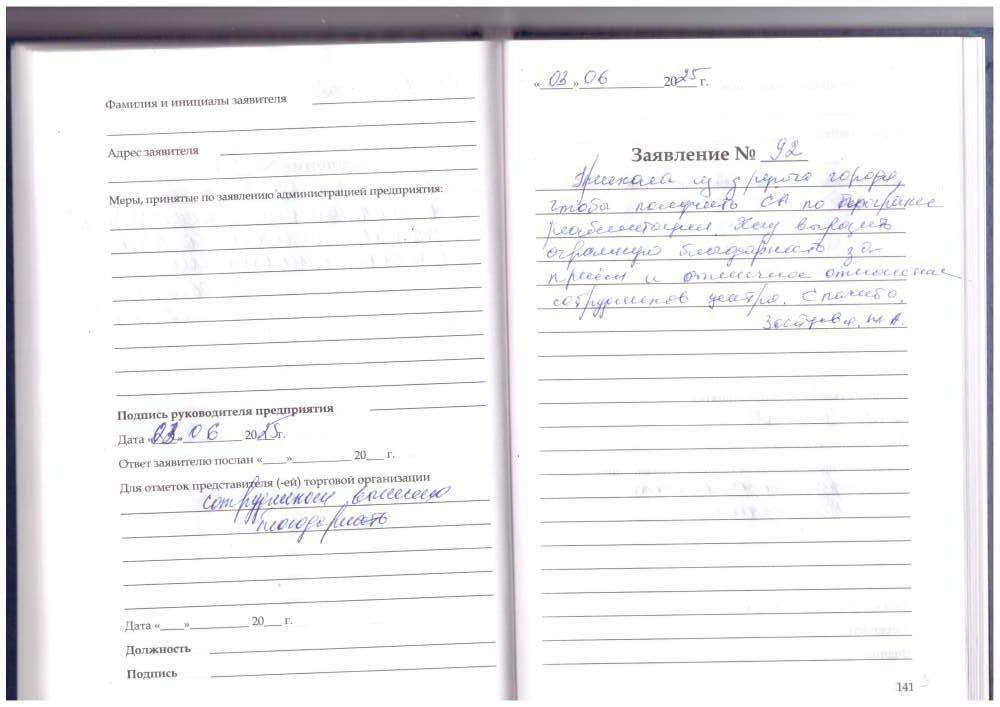 Фамилия и инициалы заявителя
Адрес заявителя
Меры, принятые по заявлению администрацией предприятия:
Подпись руководителя предприятия
Дата «03» 06 2025 г.
Ответ заявителю послан «___»__________ 20___ г.
Для отметок представителя (-ей) торговой организации
сотрудникам вынесена
благодарность
Дата «___»__________ 20___ г.
Должность
Подпись
«03» 06 2025 г.
Заявление № 92
Приехала из другого города,
чтобы получить СА по программе
реабилитации. Хочу выразить
огромную благодарность за
приём и отличное отношение
сотрудников центра. Спасибо.
141